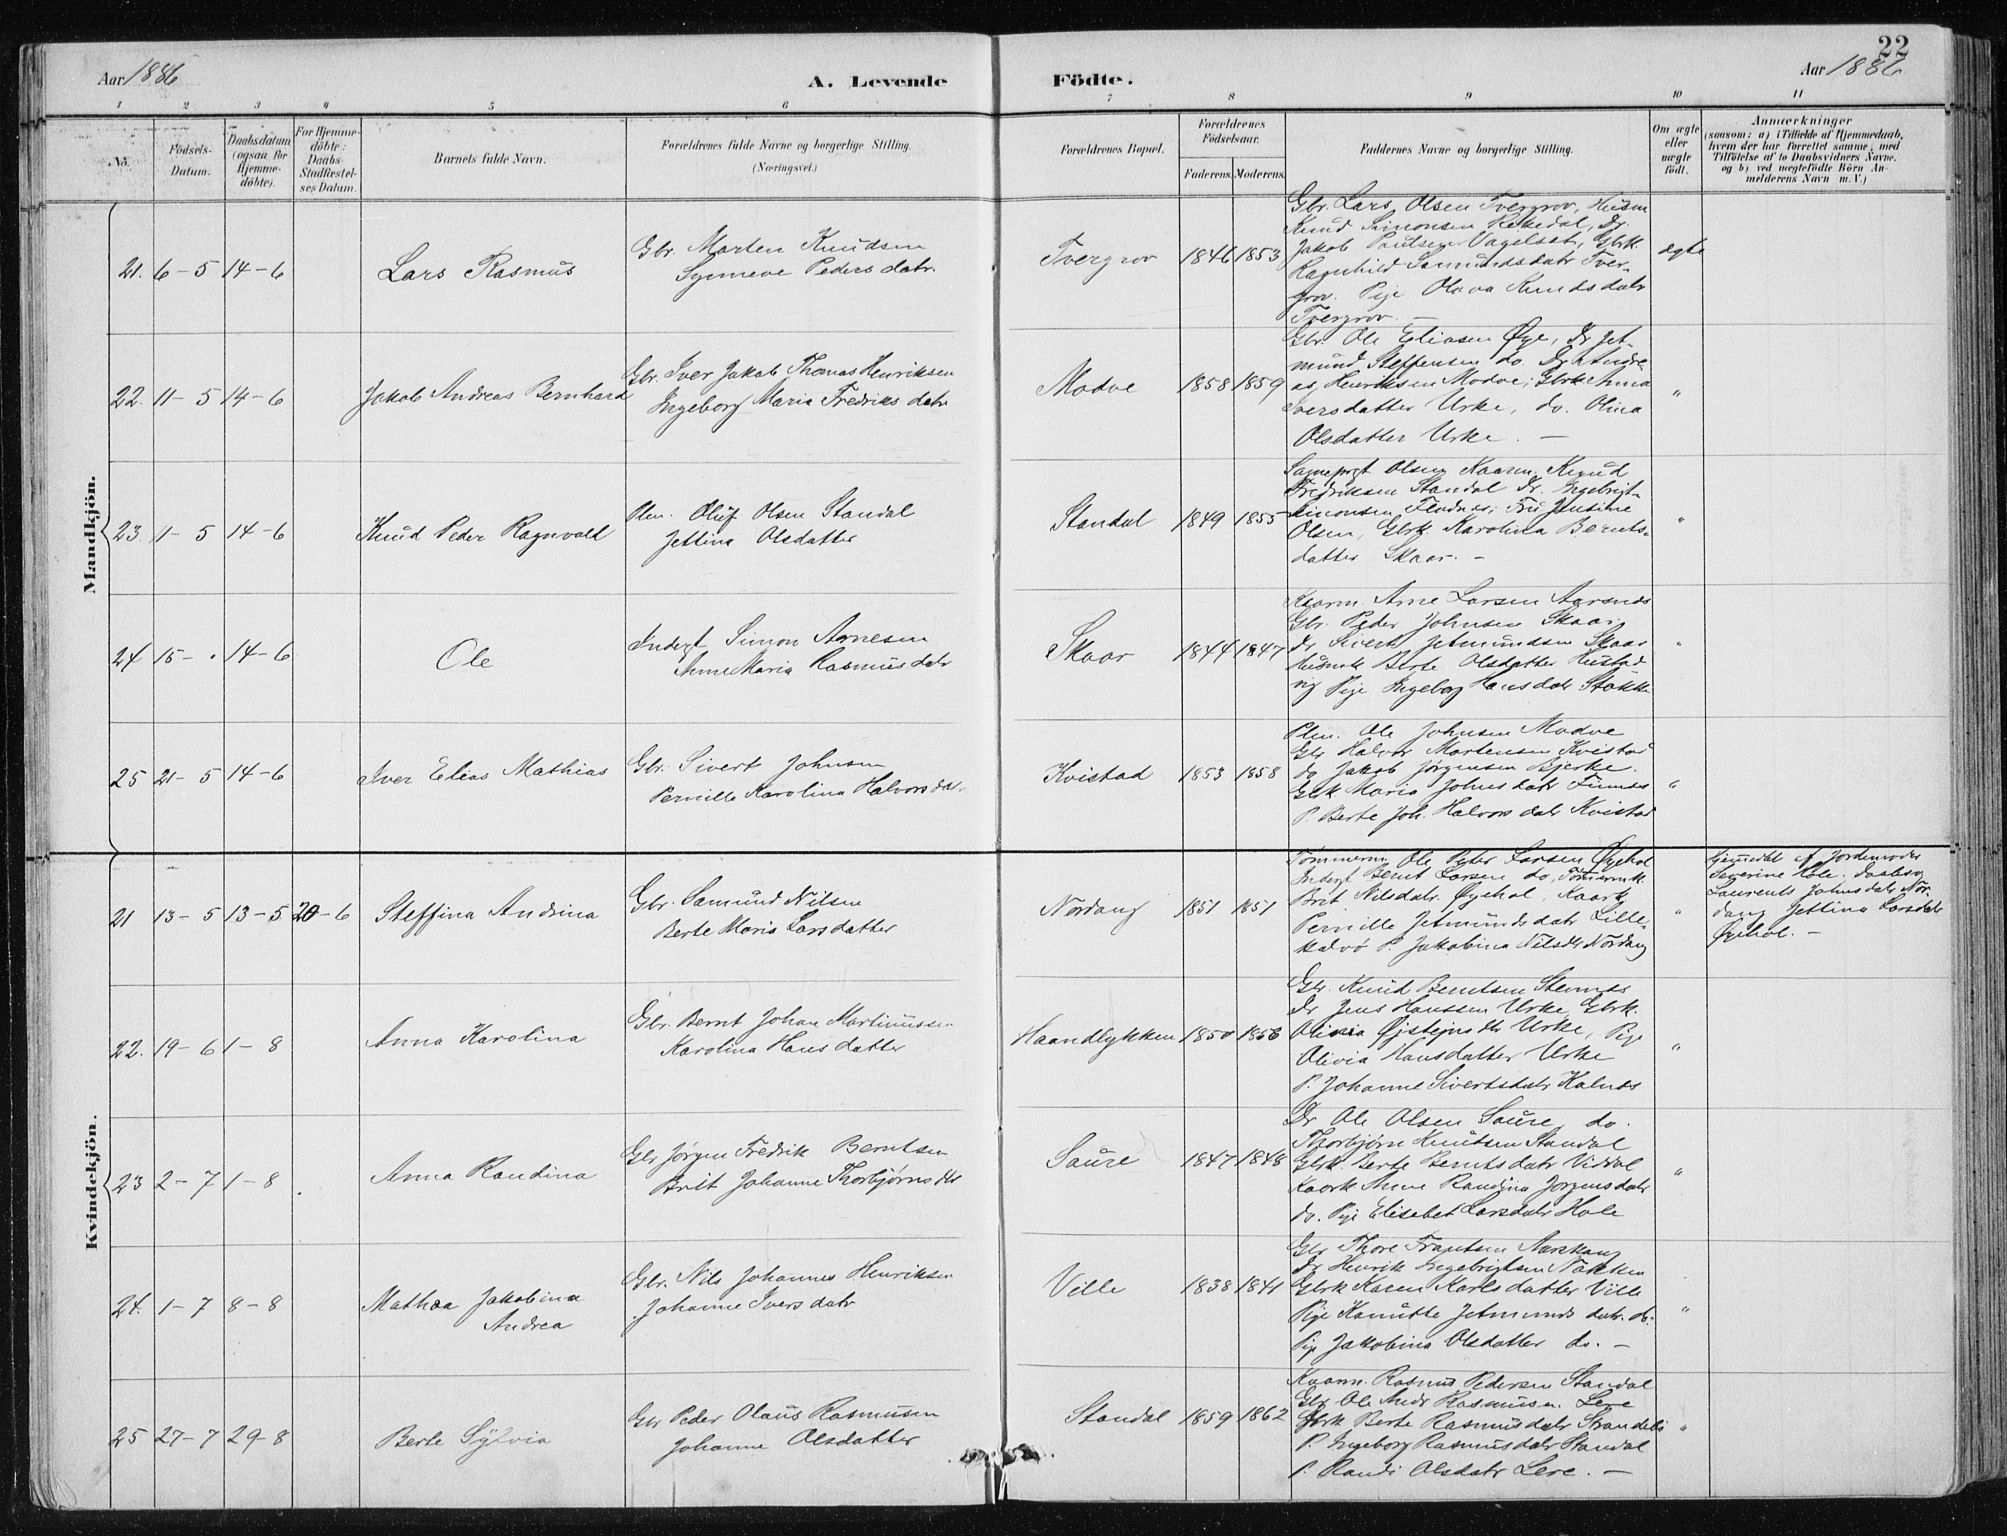 22
Aar 1886
A. Levende Födte.
Aar 1886
1 2 3 4 5 6 7 8 9 10 11
No.
Födsels-Datum.
Daabsdatum (ogsaa for Hjemme-döbte).
For Hjemme-döbte: Daabs Stadfæstel-ses Datum.
Barnets fulde Navn.
Forældrenes fulde Navne og borgerlige Stilling. (Næringsvei.)
Forældrenes Bopæl.
Forældrenes Födselsaar.
Faderens. Moderens.
Faddernes Navne og borgerlige Stilling.
Om ægte eller uægte födt.
Anmærkninger
(saasom: a) i Tilfælde af Hjemmedaab, hvem der har forrettet samme, med Tilföielse af to Daabsvidners Navne. og b) ved uægtefödte Börn An-melderens Navn m. V.)
Mandkjön.
21. 6-5 14-6 Lars Rasmus
Gbr. Morten Knudsen
Synneve Pedersdatr.
Tvergrov 1846 1853
Gbr. Lars Olsen Tvergrov, Husm
Knud Simonsen Rekkedal, Dr
Jakob Paulsen Vagelset, Gbrk.
Ragnhild Samundsdatr Tver-
grov. Pige Olava Knudsdatr
Tvergrov. —
ægte
22. 11-5 14-6 Jakob Andreas Bernhard
Gbr. Iver Jakob Thomas Henriksen
Ingeborg Maria Fredriksdatr
Modve 1858 1859
Gbr Ole Eliasen Øye, Dr Jet-
mund Steffensen do Dr Andre-
as Henriksen Modve, Gbrk Anna
Iversdatter Urke, do. Olina
Olsdatter Urke. —
"
23. 11-5 14-6 Knud Peder Ragnvald
Plm. Oluf Olsen Standal
Jettina Olsdatter
Standal 1849 1855
Olsen Kaarm. Knud
Fredriksen Standal Dr. Ingebrigt
Simonsen Flodnes; Fru Jensine
Olsen, Gbrk. Karolina Bernts-
datter Skaar. —
"
24 15-. 14-6 Ole
Inderst Simon Arnesen
Anne Maria Rasmusdatr
Skaar 1844 1847
Kaarm. Arne Larsen Aarsnes
Gbr. Peder Johnsen Skaar
Dr Sivert Jetmundsen Skaar
Husmk Berte Olsdatter Hustad
vig Pige Ingeborg Hansdatr Stokke
"
25 21-5 14-6 Iver Elias Mathias
Gbr. Sivert Johnsen
Pernille Karolina Halvorsdatr
Kvistad 1853 1858
Plm. Ole Johnsen Modve
Gbr Halvor Mortensen Kvistad
do Jakob Jørgensen Bjerke.
Gbrk Maria Johnsdatr Finnes
P. Berte Joh. Halvorsdatr Kvistad
"
Kvindekjön.
21 13-5 13-5 20-6 Steffina Andrina
Gbr. Samund Nilsen
Berte Maria Larsdatter
Nordang 1851 1851
Tømmerm Ole Peter Larsen Øyehol
Inderst Bernt Larsen do, Tømmermk
Brit Nilsdatr. Øyehol, Kaark
Pernille Jetmundsdatr Lille
kalvø P. Jakobina Nilsdtr Nordang
"
Hjemmedøbt af Jordemoder
Severine Hole. Daabsv
Laurents Johnsdatr Nor-
dang Jettina Larsdatr
Øyehol. —
22. 19-6 1-8 Anna Karolina
Gbr. Bernt Johan Martinussen
Karolina Hansdatter
Haandlykken 1850 1856
Gbr. Knud Berntsen Stennes
Dr Jens Hanssen Urke, Gbrk.
Olivia Øjstejnsdtr Urke, Pige
Olivia Hansdatter Urke
P. Johanne Sivertsdatr Kalnes
"
23 2-7 1-8 Anna Randina
Gbr Jørgen Fredrik Berntsen
Brit Johanne Thorbjørnsdtr
Saure 1847 1848
Dr Ole Olsen Saure do.
Thorbjørn Knudsen Standal
Gbrk Berte Berntsdatr Viddal
Kaark Anne Randina Jørgensdatr
do. Pige Elisabet Larsdatr Hole
"
24. 1-7 8-8 Mathea Jakobina
Andrea
Gbr. Nils Johannes Henriksen
Johanne Iversdatr
Ville 1838 1841
Gbr Thore Frantsen Aarskaug
Dr Henrik Ingebrigtsen Nakken
Gbrk Karen Karlsdatter Ville
Pige Hanutte Jetmundsdatr. do.
Pige Jakobina Olsdatter do. —
"
25 27-7 29-8 Berte Sylvia
Gbr Peder Olaus Rasmusen
Johanne Olsdatter
Standal 1859 1862
Kaarm. Rasmus Pedersen Standal
Gbr Ole Andr Rasmusen Leve
Gbrk Berte Rasmusdatr Strandabø
P. Ingeborg Rasmusdatr Standal
P. Randi Olsdatr Leve. —
"